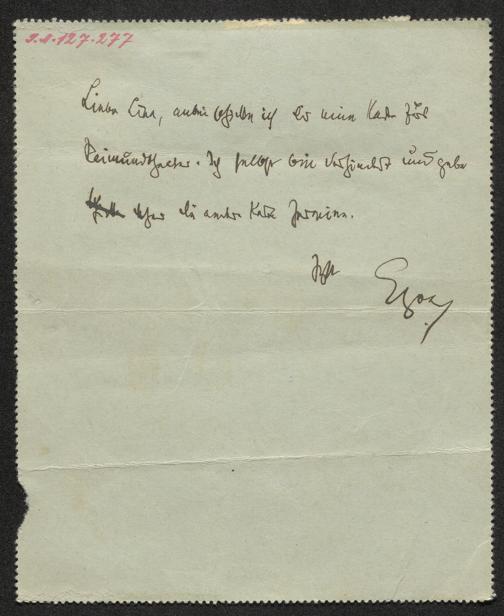 I.N.127.277
Liebe Lina, anbei schicke ich Dir eine Karte fürs
Raimundtheater. Ich selbst bin verhindert und gebe
daher die andere Karte Hermine.
Egon